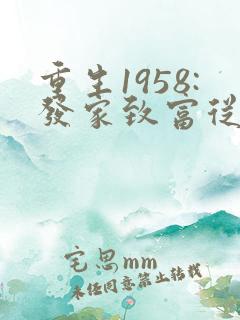 重生1958:
發家致富從
宅思mm
未经同意禁止转载